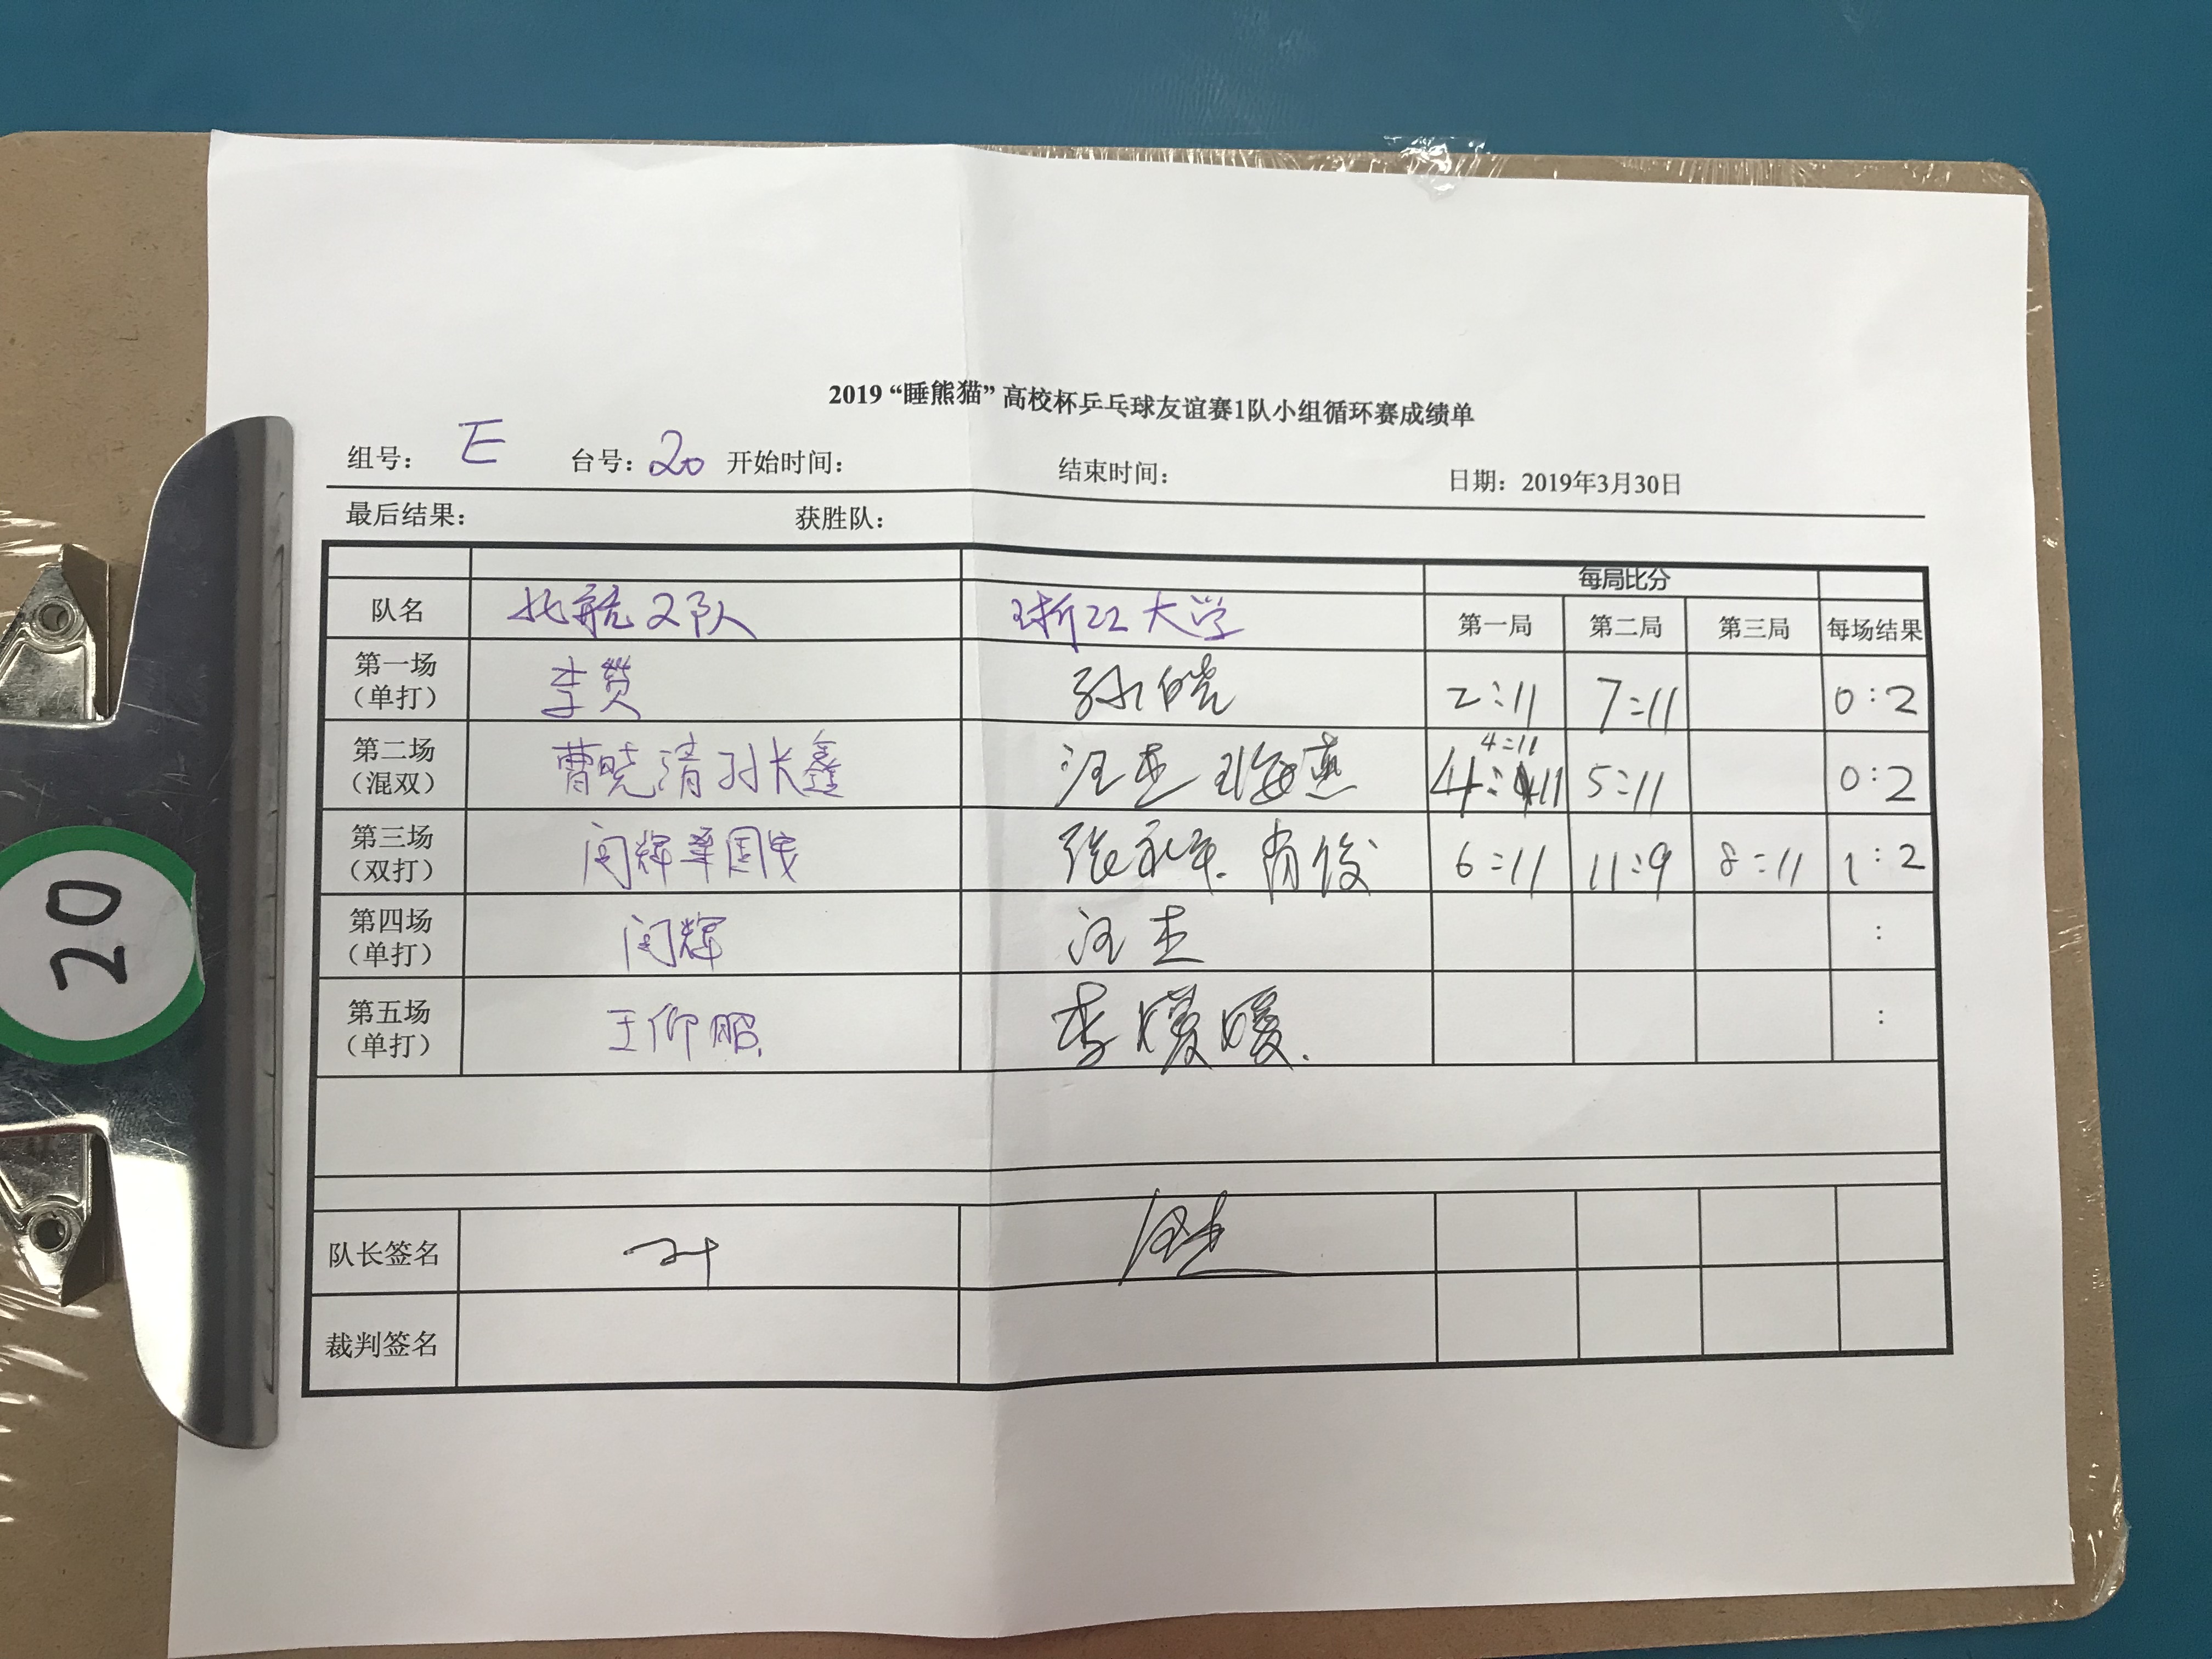 2019 “睡熊猫” 高校杯乒乓球友谊赛1队小组循环赛成绩单
组号： E 台号：20 开始时间： 结束时间： 日期：2019年3月30日
最后结果： 获胜队：
每局比分
队名 北航2队 浙江大学 第一局 第二局 第三局 每场结果
第一场（单打） 李赞 孙皓 2:11 7:11 0:2
4:11
第二场（混双） 曹晓清 孙长鑫 汪杰 王海燕 4:11 5:11 0:2
第三场（双打） 闵辉 张永平. 肖俊 6:11 11:9 8:11 1:2
第四场（单打） 闵辉 汪杰 :
第五场（单打） 王仰熙 李媛媛. :
队长签名
裁判签名
20